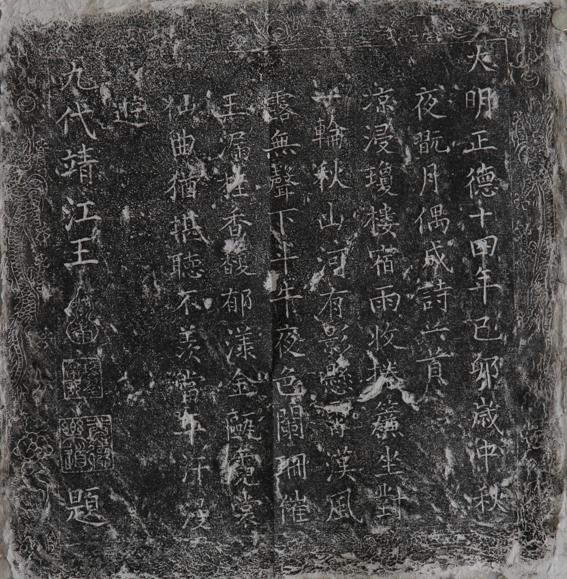 大明正德十四年己卯歲仲秋
夜翫月偶成詩首
涼浸瓊樓宿雨收捲簾坐對
一輪秋山河有影懸霄漢風
露無聲下斗牛夜色闌珊催
玉漏桂香馥郁漾金甌霓裳
仙曲猶堪聽不羨當年汗漫
遊
九代靖江王 題